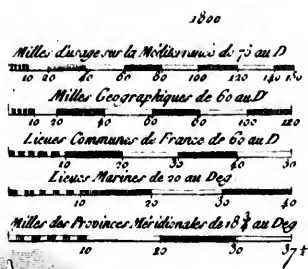 1800
Milles d'usage sur la Mediterranée de 75 au D
10 20 40 60 80 100 120 140 150
Milles Geographiques de 60 au D
10 20 40 60 80 100 120
Lieues Communes de France de 60 au D
10 20 30 40 50
Lieues Marines de 20 au Deg
10 20 30 40
Milles des Provinces Méridionales de 18 3/4 au Deg
10 20 30 37 1/2